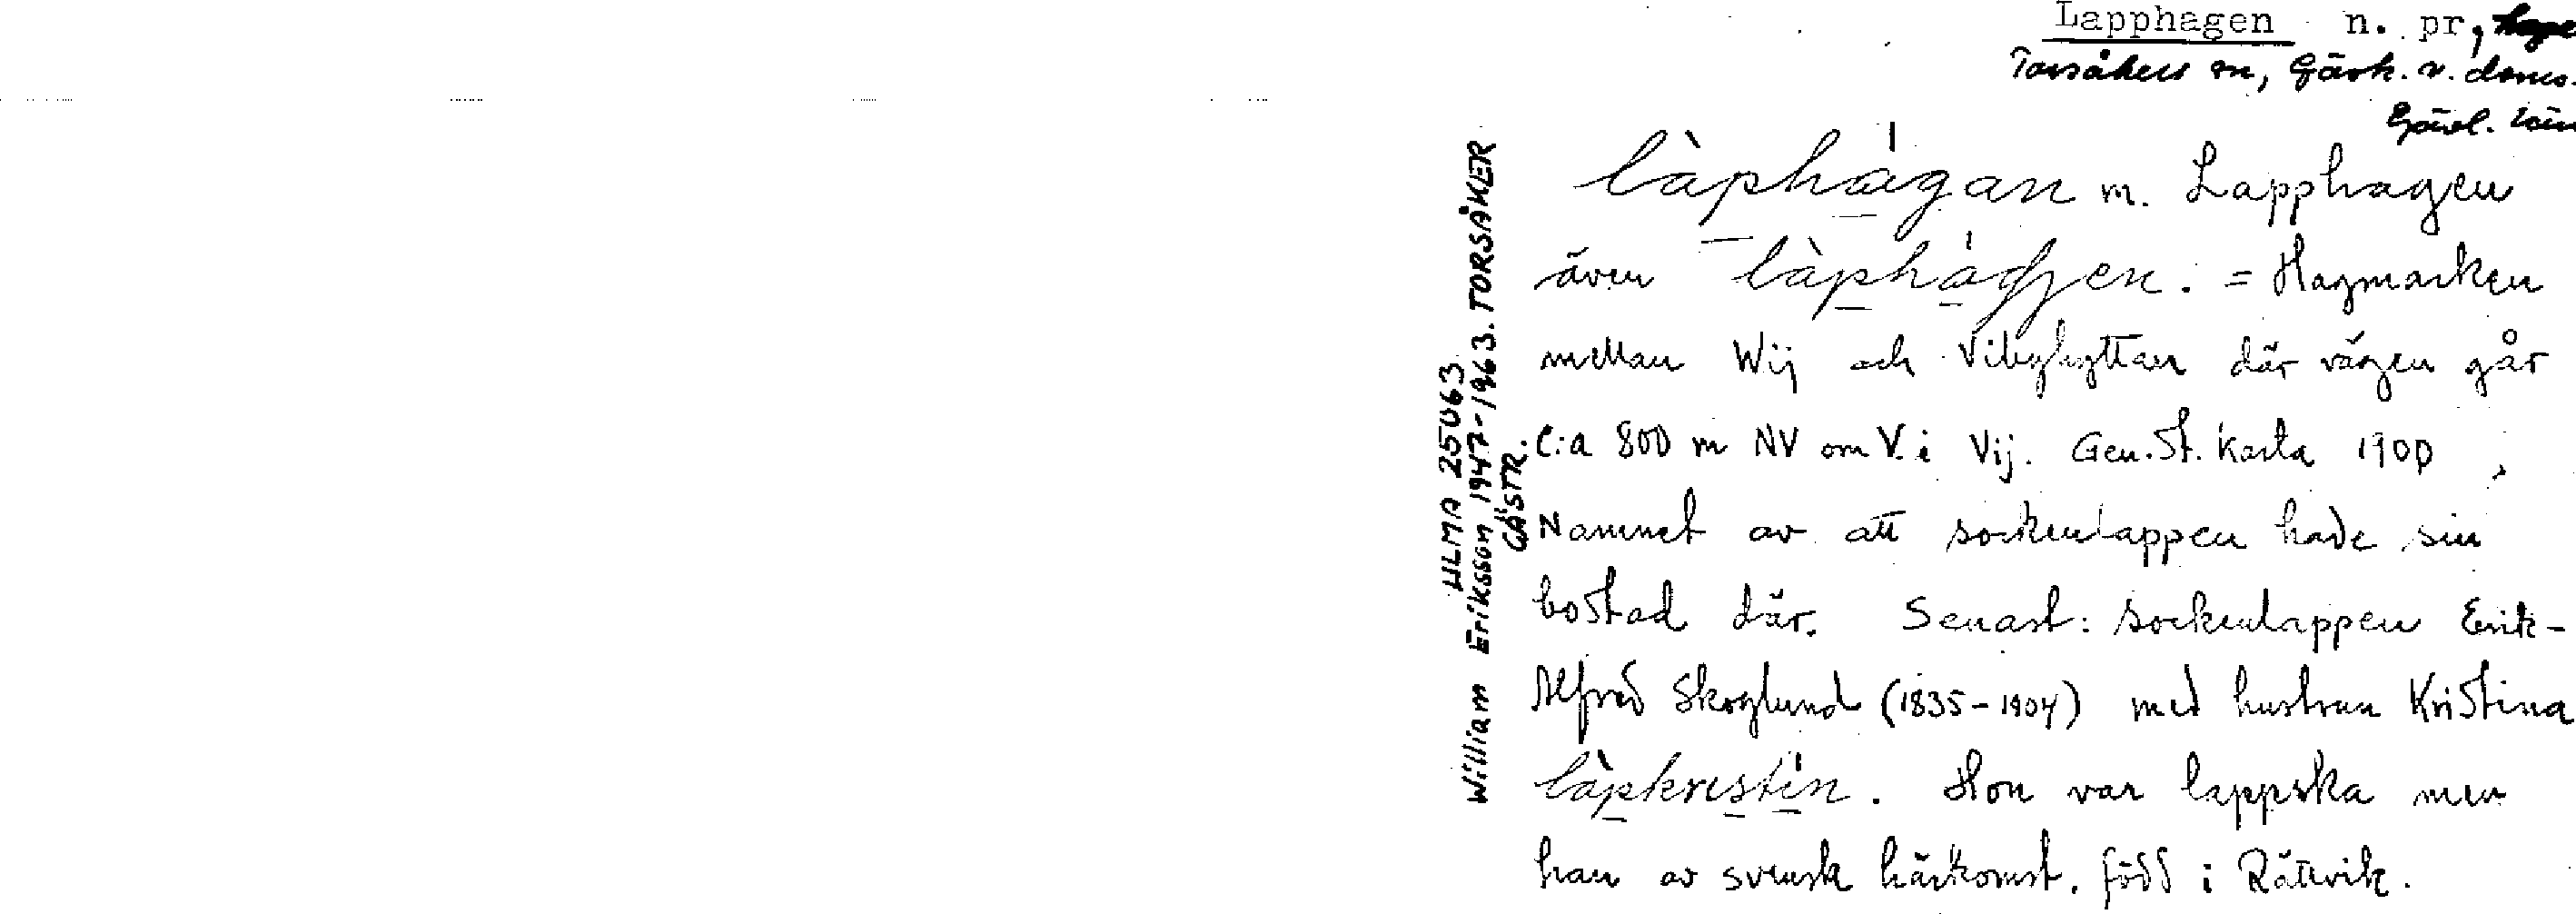 Lapphagen n. pr, hage
Torsåkers sn, Gästr. v. doms.
Gävl. län
làphágan m. Lapphagen
även làphádjen. = Hagmarken
mellan Wij och Vibyhyttan där vägen går
C:a 800 m NV om V. i Vij. Gen. St. Karta 1900,
Namnet av att sockenlappen hade sin
bostad där. Senast: sockenlappen Erik-
Alfred Skoglund (1835-1904) med hustrun Kristina
làpkrestín. Hon var lappska men
han av svensk härkomst. född i Rättvik.
ULMA 25063
William Eriksson 1947-1963. TORSÅKER
GÄSTR.